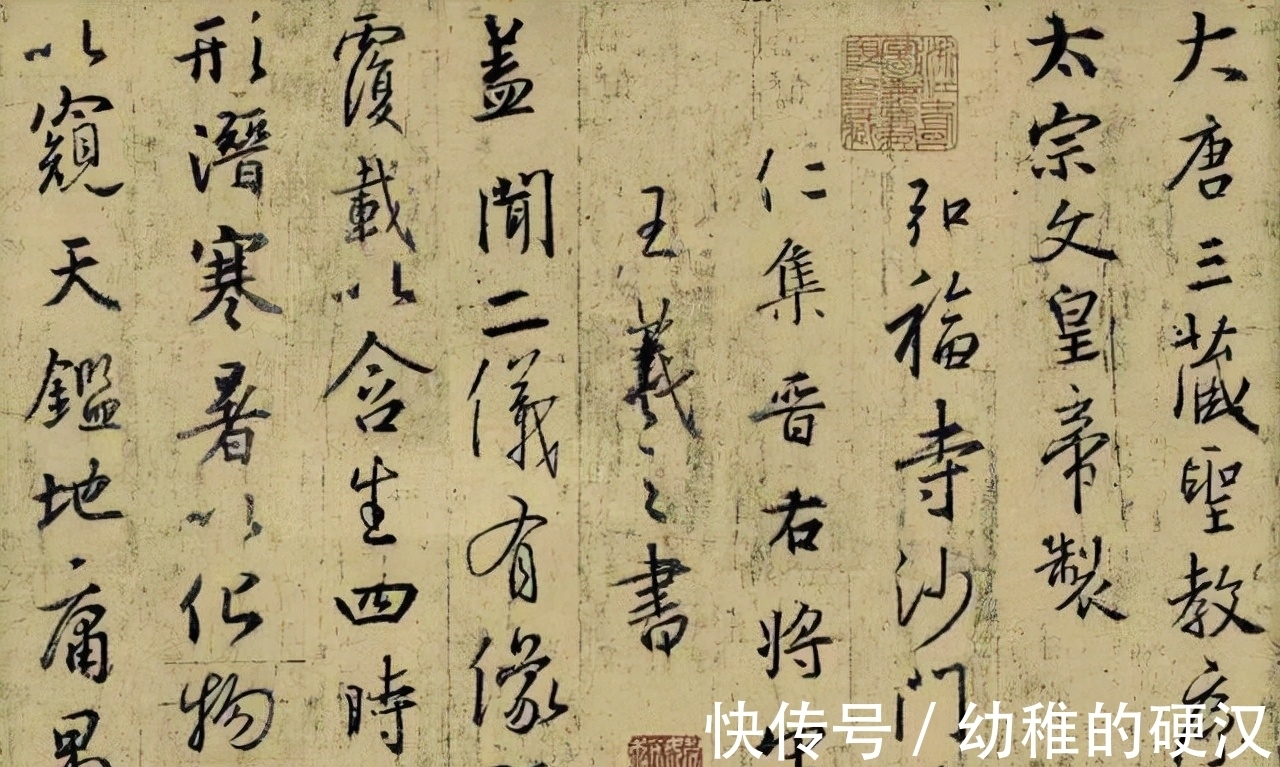 大唐三藏聖教序
太宗文皇帝製
弘福寺沙門
仁集晉右將
王羲之書
蓋聞二儀有像
覆載以含生四時
形潛寒暑以化物
以窺天鑑地庸
快传号 / 幼稚的硬汉